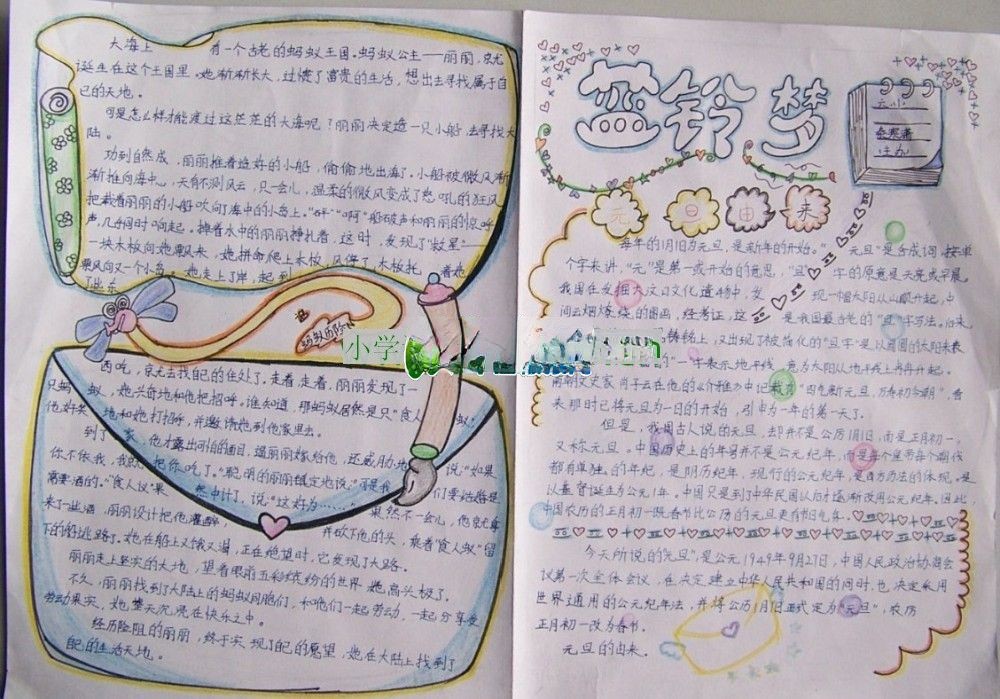 大海上 有一个古老的蚂蚁王国。蚂蚁公主——丽丽,就
诞生在这个王国里。她渐渐长大,过惯了富贵的生活,想出去寻找属于自
己的天地。
可是怎么样才能渡过这茫茫的大海呢?丽丽决定造一只小船,去寻找大
陆。
功到自然成,丽丽推着造好的小船,偷偷地出海了。小船被微风渐
渐推向海中心,天有不测风云,只一会儿,温柔的微风变成了怒吼的狂风
把载着丽丽的小船吹向了海中的小岛上。“砰”“啊”船破声和丽丽的惊呼
声,几乎同时响起。掉落水中的丽丽挣扎着,这时,发现了“救星”——
一块木板向她飘来,她拼命爬上木板,风停了,木板托 着她
乘风向又一个小岛。她走上了岸,起到
蚂蚁历险
小学
西吃,就去找自己的住处了。走着走着,丽丽发现了一
只蚂 蚁,她兴奇地和他把招呼。谁知道,那蚂蚁居然是只“食人 蚁!
他好荣 地和她打招呼,并邀请她到他家里去。
到了 家,他才露出可怕的面目,逼丽丽嫁给他,还威胁地 说:“如果
你不依我,我就 把你吃了。”聪明的丽丽镇定地说:“可是我 们要结婚是
需要酒的。”食人蚁果 然中计了,说:“这好办…… 果然不一会儿,他就拿
来了一些酒,丽丽设计把他灌醉, 并砍下他的头,乘着“食人蚁”留
下的船逃路了。她在船上又饿又渴,正在绝望时,它发现了大路。
丽丽走上坚实的大地,望着眼前五彩缤纷的世界,她高头极了。
不久,丽丽找到了大陆上的蚂蚁同胞们,和他们一起劳动,一起分享受
劳动果实,她整天沉浸在快乐之中。
经历险阻的丽丽,终于实现了自己的愿望,她在大陆上找到了
自己的生活天地。
蓝铃梦
元小
主办
元旦由来
每年的1月1日为元旦,是新年的开始。“ 元旦”是合成词,按单
个字来讲,“元”是第一或开始的意思,“旦” 字的原意是天亮或早晨。
我国在发掘大汶口文化遗物中,发 现一幅太阳从山巅升起,中
间云烟缭绕的图画,经考证,这 是我国最古老的“旦”字写法。后来
铸铭上,又出现了被简化的“旦字”是以圆圆的太阳来表
“一”字表示地平线,意为太阳从地平线上冉冉升起。
南朝文史家肖子云在他的《介雅》中记载为“四气新元旦,万寿初今朝”,看
来那时已将元旦为一日的开始,引申为一年的第一天了。
但是,我国古人说的元旦,却并不是公历1月1日,而是正月初一,
又称元旦。中国历史上的年号并不是公元纪年,而是每个皇帝每个朝代
都有单独的年纪,是阴历纪年,现行的公元纪年,是西方历法的体现,是
以基督诞生为公元1年。中国只是到了中华民国以后才逐渐改用公元纪年。因此,
中国农历的正月初一既春节比公历的元旦更有节日气氛。
今天所说的“元旦”,是公元1949年9月27日,中国人民政治协商会
议第一次全体会议,在决定建立中华人民共和国的同时,也决定采用
世界通用的公元纪年法,并将公历1月1日正式定为“元旦”,农历
正月初一改为春节。
元旦的由来。